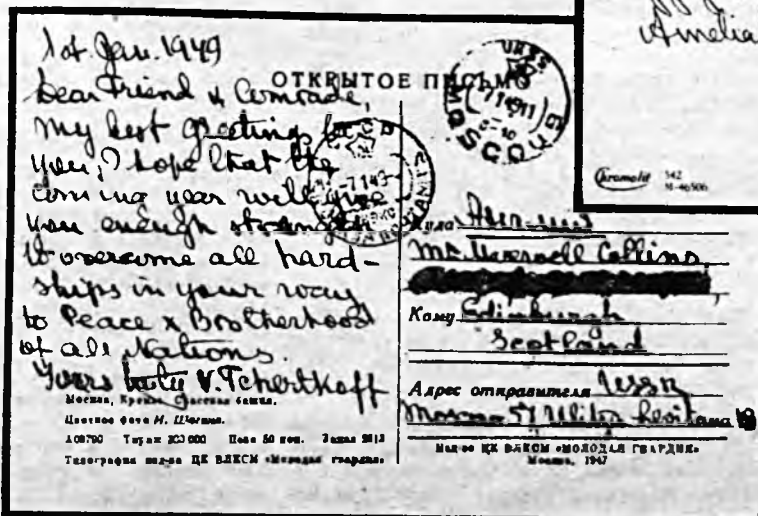 1st Jan. 1949
Dear Friend & Comrade,
my best greetings to
you, I hope that the
coming year will give
you enough strength
to overcome all hard-
ships in your way
to Peace & Brotherhood
of all Nations.
Yours V. Tchertkoff
Москва, Кремль, Спасская башня.
Цветное фото И. Шагина.
Тираж 200 000 Цена 50 коп. Заказ
Типография изд-ва ЦК ВЛКСМ «Молодая гвардия»
ОТКРЫТОЕ ПИСЬМО
MOSCOU
Куда
Mr. Collins,
Кому Edinburgh
Scotland
Адрес отправителя USSR
Moscow 57 Ulitsa Levitana
Изд-во ЦК ВЛКСМ «МОЛОДАЯ ГВАРДИЯ»
Москва, 1947
Amelia
Chromolit 542
M-46506